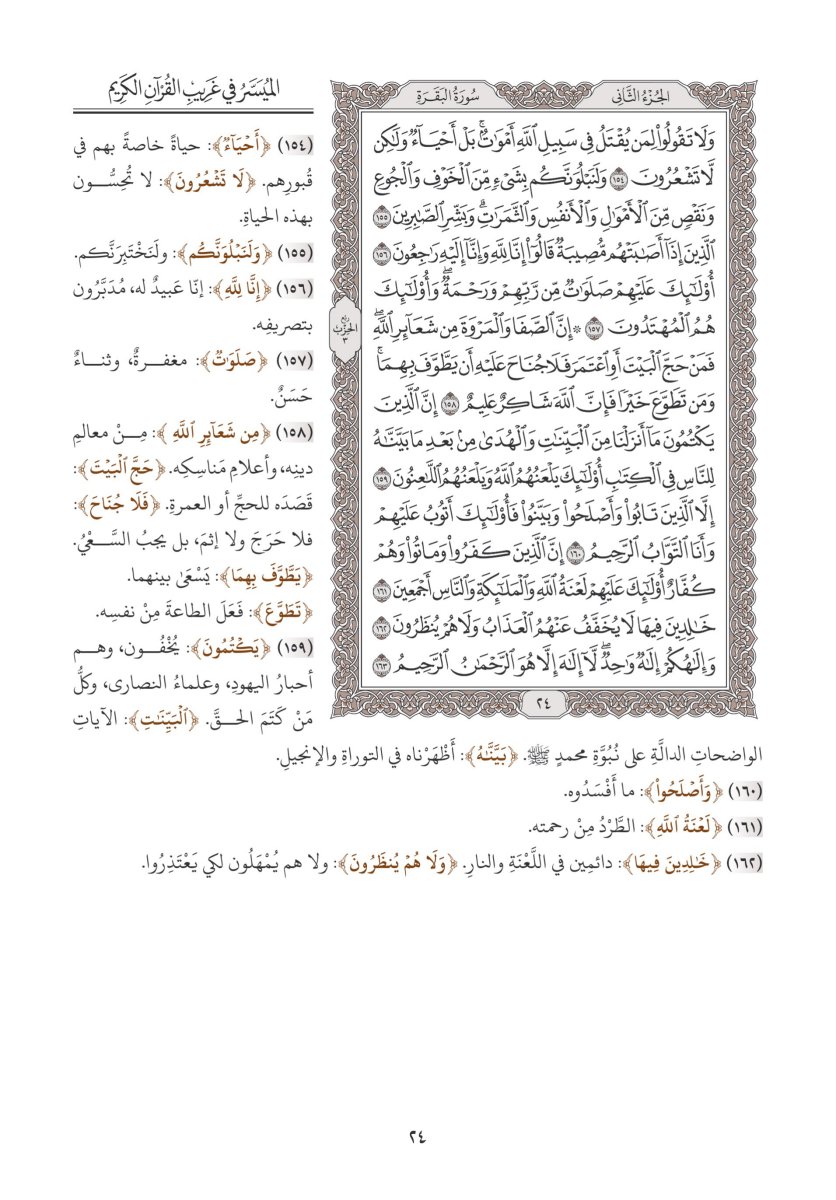 المُيَسَّرُ في غَرِيبِ القُرْآنِ الكَرِيم
الجُزْءُ الثَّانِي
سُورَةُ البَقَرَةِ
وَلَا تَقُولُوا۟ لِمَن يُقْتَلُ فِى سَبِيلِ ٱللَّهِ أَمْوَٰتٌۢ ۚ بَلْ أَحْيَآءٌ وَلَٰكِن
لَّا تَشْعُرُونَ ١٥٤ وَلَنَبْلُوَنَّكُم بِشَىْءٍ مِّنَ ٱلْخَوْفِ وَٱلْجُوعِ
وَنَقْصٍ مِّنَ ٱلْأَمْوَٰلِ وَٱلْأَنفُسِ وَٱلثَّمَرَٰتِ ۗ وَبَشِّرِ ٱلصَّٰبِرِينَ ١٥٥
ٱلَّذِينَ إِذَآ أَصَٰبَتْهُم مُّصِيبَةٌ قَالُوٓا۟ إِنَّا لِلَّهِ وَإِنَّآ إِلَيْهِ رَٰجِعُونَ ١٥٦
أُو۟لَٰٓئِكَ عَلَيْهِمْ صَلَوَٰتٌ مِّن رَّبِّهِمْ وَرَحْمَةٌ ۖ وَأُو۟لَٰٓئِكَ
هُمُ ٱلْمُهْتَدُونَ ١٥٧ ۞ إِنَّ ٱلصَّفَا وَٱلْمَرْوَةَ مِن شَعَآئِرِ ٱللَّهِ ۖ
فَمَنْ حَجَّ ٱلْبَيْتَ أَوِ ٱعْتَمَرَ فَلَا جُنَاحَ عَلَيْهِ أَن يَطَّوَّفَ بِهِمَا ۚ
وَمَن تَطَوَّعَ خَيْرًا فَإِنَّ ٱللَّهَ شَاكِرٌ عَلِيمٌ ١٥٨ إِنَّ ٱلَّذِينَ
يَكْتُمُونَ مَآ أَنزَلْنَا مِنَ ٱلْبَيِّنَٰتِ وَٱلْهُدَىٰ مِنۢ بَعْدِ مَا بَيَّنَّٰهُ
لِلنَّاسِ فِى ٱلْكِتَٰبِ ۙ أُو۟لَٰٓئِكَ يَلْعَنُهُمُ ٱللَّهُ وَيَلْعَنُهُمُ ٱللَّٰعِنُونَ ١٥٩
إِلَّا ٱلَّذِينَ تَابُوا۟ وَأَصْلَحُوا۟ وَبَيَّنُوا۟ فَأُو۟لَٰٓئِكَ أَتُوبُ عَلَيْهِمْ ۚ
وَأَنَا ٱلتَّوَّابُ ٱلرَّحِيمُ ١٦٠ إِنَّ ٱلَّذِينَ كَفَرُوا۟ وَمَاتُوا۟ وَهُمْ
كُفَّارٌ أُو۟لَٰٓئِكَ عَلَيْهِمْ لَعْنَةُ ٱللَّهِ وَٱلْمَلَٰٓئِكَةِ وَٱلنَّاسِ أَجْمَعِينَ ١٦١
خَٰلِدِينَ فِيهَا ۖ لَا يُخَفَّفُ عَنْهُمُ ٱلْعَذَابُ وَلَا هُمْ يُنظَرُونَ ١٦٢
وَإِلَٰهُكُمْ إِلَٰهٌ وَٰحِدٌ ۖ لَّآ إِلَٰهَ إِلَّا هُوَ ٱلرَّحْمَٰنُ ٱلرَّحِيمُ ١٦٣
ربع
الحزب
٣
٢٤
(١٥٤) ﴿أَحْيَآءٌ﴾: حياةً خاصةً بهم في
قُبورِهم. ﴿لَا تَشْعُرُونَ﴾: لا تُحِسُّون
بهذه الحياةِ.
(١٥٥) ﴿وَلَنَبْلُوَنَّكُم﴾: ولَنَخْتَبِرَنَّكم.
(١٥٦) ﴿إِنَّا لِلَّهِ﴾: إنّا عَبيدٌ له، مُدَبَّرُون
بتصريفِه.
(١٥٧) ﴿صَلَوَٰتٌ﴾: مغفرةٌ، وثناءٌ
حَسَنٌ.
(١٥٨) ﴿مِن شَعَآئِرِ ٱللَّهِ﴾: مِنْ معالمِ
دينِه، وأعلامِ مَناسِكِه. ﴿حَجَّ ٱلْبَيْتَ﴾:
قَصَدَه للحجِّ أو العمرةِ. ﴿فَلَا جُنَاحَ﴾:
فلا حَرَجَ ولا إثمَ، بل يجبُ السَّعْيُ.
﴿يَطَّوَّفَ بِهِمَا﴾: يَسْعَىٰ بينهما.
﴿تَطَوَّعَ﴾: فَعَلَ الطاعةَ مِنْ نفسِه.
(١٥٩) ﴿يَكْتُمُونَ﴾: يُخْفُون، وهم
أحبارُ اليهودِ، وعلماءُ النصارى، وكلُّ
مَنْ كَتَمَ الحقَّ. ﴿ٱلْبَيِّنَٰتِ﴾: الآياتِ
الواضحاتِ الدالَّةِ على نُبُوَّةِ محمدٍ ﷺ. ﴿بَيَّنَّٰهُ﴾: أَظْهَرْناه في التوراةِ والإنجيلِ.
(١٦٠) ﴿وَأَصْلَحُوا۟﴾: ما أَفْسَدُوه.
(١٦١) ﴿لَعْنَةُ ٱللَّهِ﴾: الطَّرْدُ مِنْ رحمته.
(١٦٢) ﴿خَٰلِدِينَ فِيهَا﴾: دائمِين في اللَّعْنَةِ والنارِ. ﴿وَلَا هُمْ يُنظَرُونَ﴾: ولا هم يُمْهَلُون لكي يَعْتَذِرُوا.
٢٤